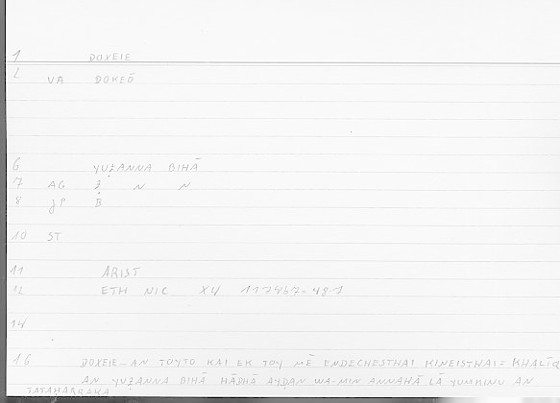 1 DOXEIE
2 VA DOKEŌ
6 YUẒANNA BIHĀ
7 AG Ẓ N N
8 JP B
10 ST
11 ARIST
12 ETH NIC X4 1174b7-
14
16 DOXEIE AN TOYTO KAI EK TOY MĒ ENDECHESTHAI KINEISTHAI= KHALĪQ
AN YUẒANNA BIHĀ HĀDHĀ AYḌAN WA-MIN ANNAHĀ LĀ YUMKINU AN
TATAḤARRAKA